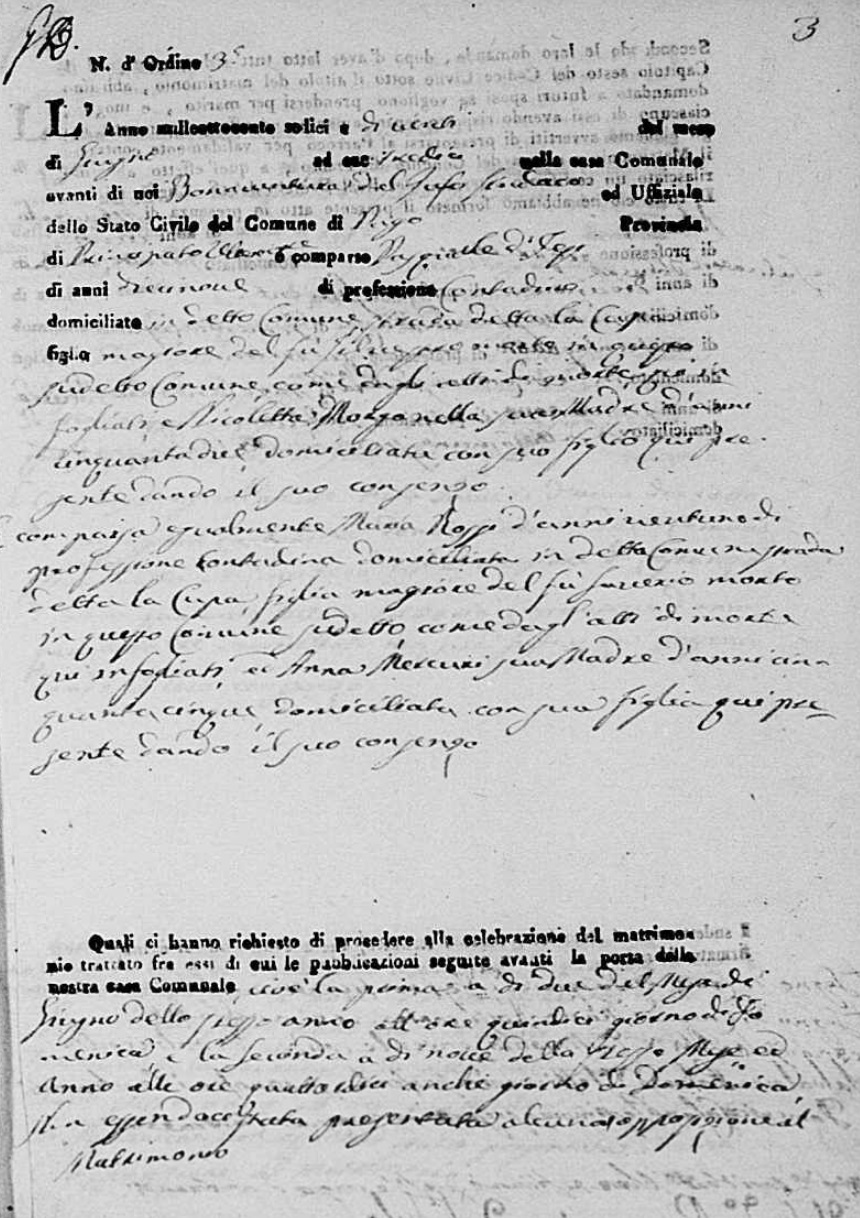 3
N. d' Ordine 3
L' Anno milleottocento sedici a di venti del mese
di Giugno ad ore tredici nella casa Comunale
avanti di noi Bonaventura Sindaco ed Uffiziale
dello Stato Civile del Comune di Provincia
di Principato è comparso Pasquale di
di anni di professione Contadino
domiciliato in detto Comune strada detta la Cupa
figlio magiore del fu morto in questo
sudetto Comune, come dagli atti di morte qui in
fogliati, e Nicoletta Morganella sua Madre d'anni
cinquantadue domiciliata con suo figlio qui pre-
sente dando il suo consenso.
comparsa egualmente Maria Rossi d'anni ventuno di
professione Contadina domiciliata in detto Comune strada
detta la Cupa, figlia magiore del fu morto
in questo Comune sudetto come dagli atti di morte
qui infogliati, ed Anna Mercuri sua Madre d'anni cin-
quantacinque domiciliata con sua figlia qui pre-
sente dando il suo consenso
Quali ci hanno richiesto di procedere alla celebrazione del matrimo-
nio trattato fra essi di cui le pubblicazioni seguite avanti la porta della
nostra casa Comunale cioè la prima a di due del Mese di
Giugno dello stesso anno all'ore quindici giorno di Do
menica e la seconda a di nove dello stesso Mese ed
Anno alle ore quattordici anche giorno di Domenica
essendoci stata presentata alcuna opposizione al
Matrimonio